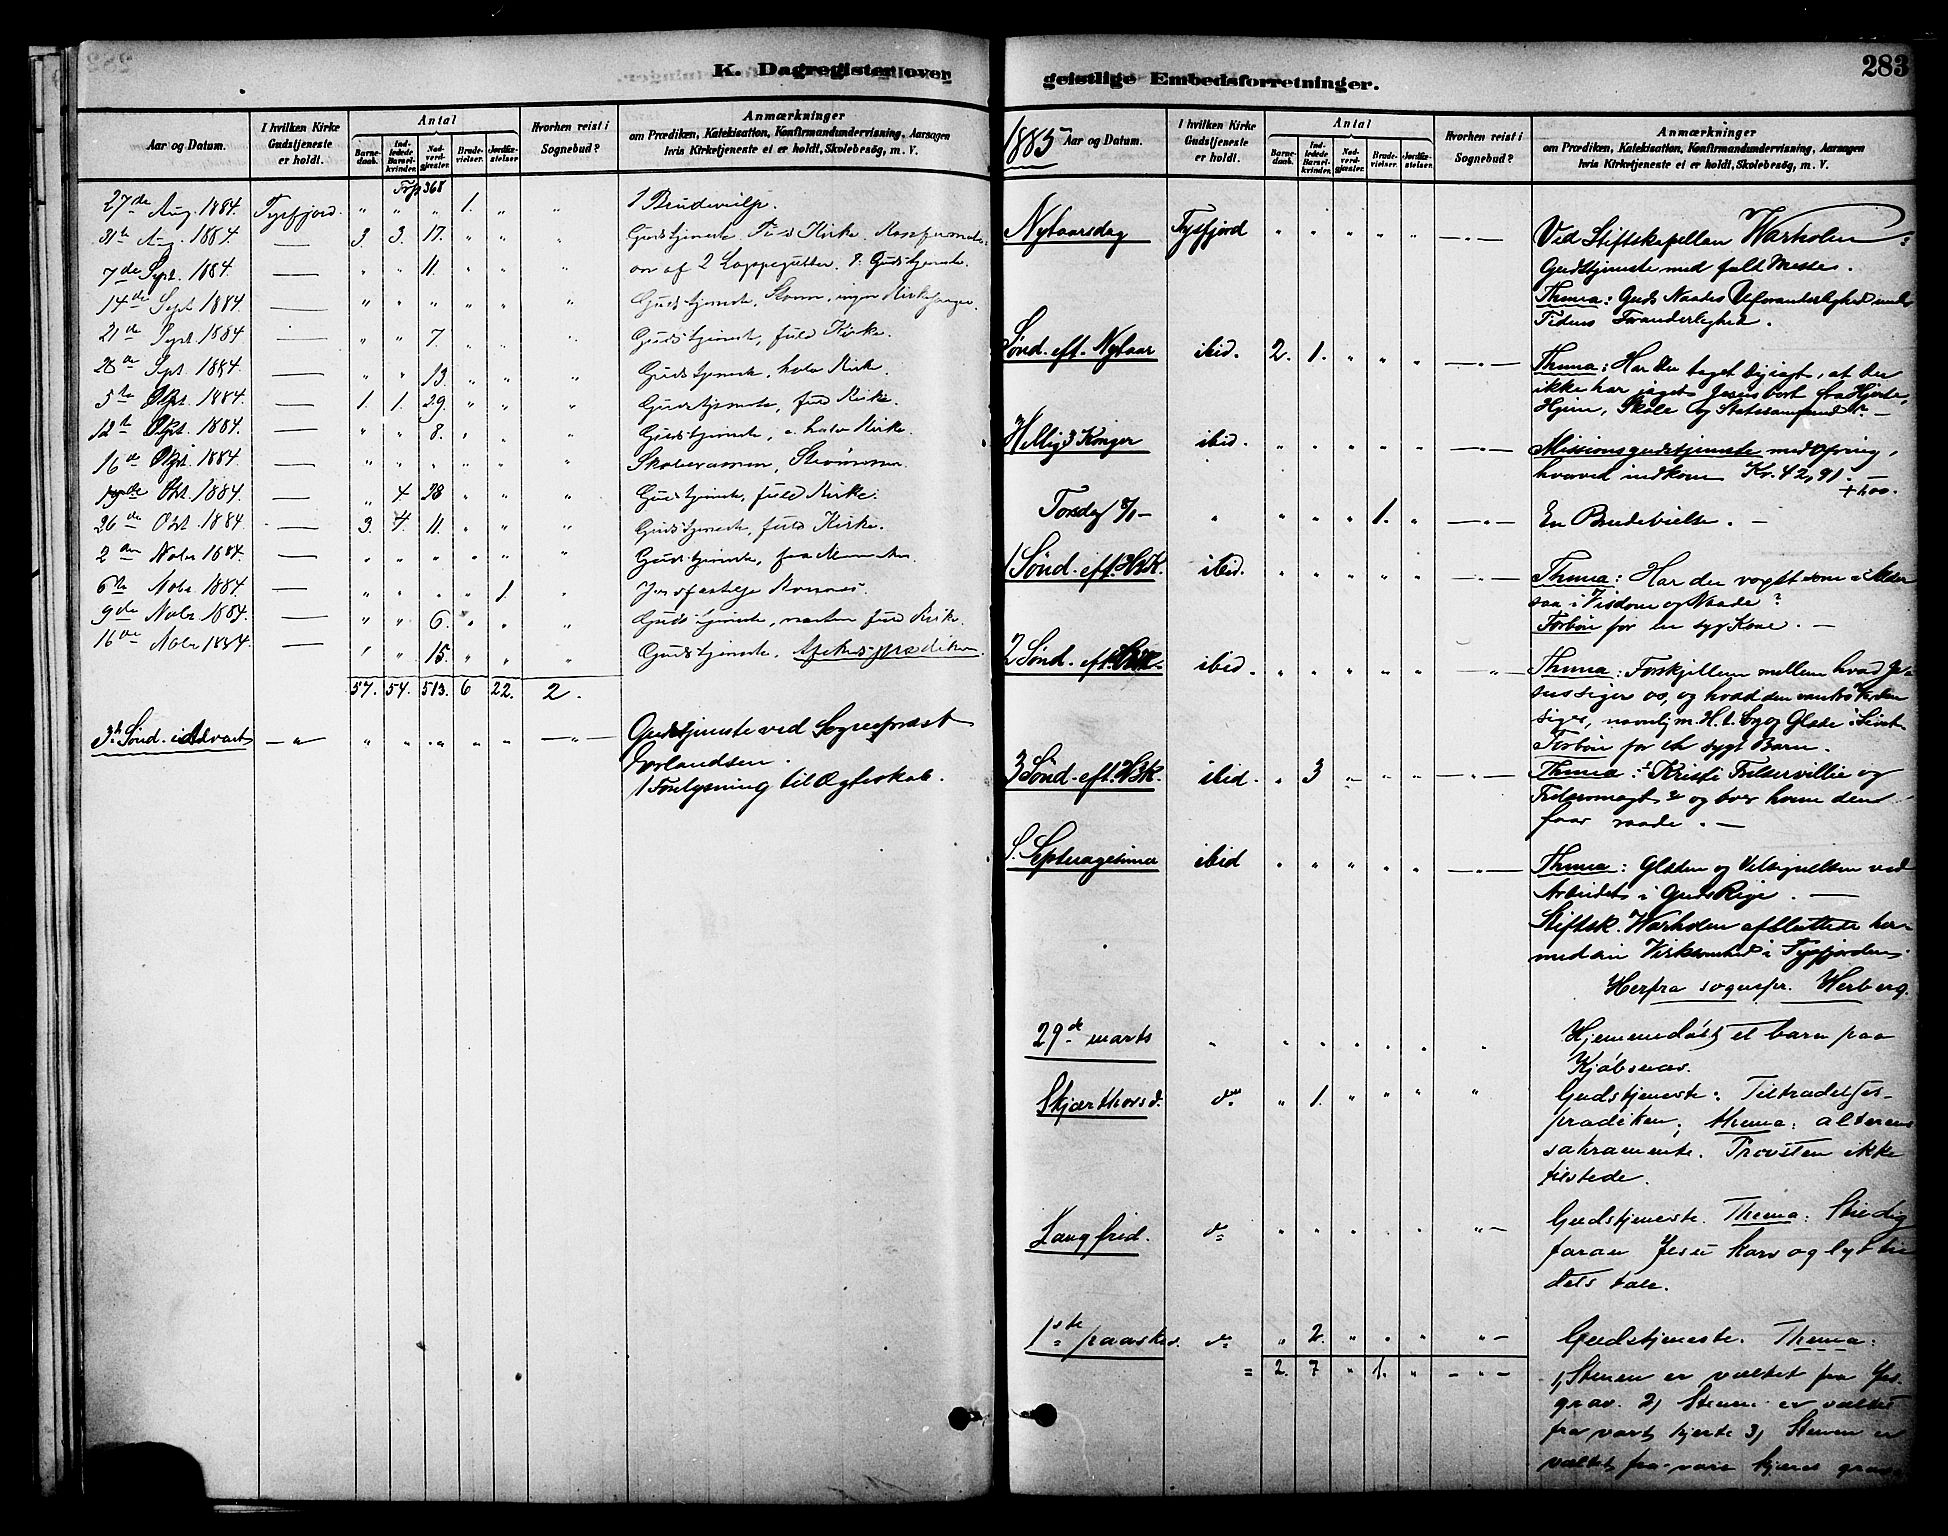 K. Dagregister over
Anmærkninger
Antal
Aar og Datum.
I hvilken Kirke Gudstjeneste er holdt.
Barnedaab.
Indledede Barselkvinder.
Nadverdgjæster.
Brudevielser.
Jordfæstelser.
Hvorhen reist i Sognebud?
om Prædiken, Katekisation, Konfirmandundervisning, Aarsagen
hvis Kirketjeneste ei er holdt, Skolebesög, m. V.
27de Aug. 1884. Tysfjord. " " " 1. " "
31te Aug. 1884. — 3. 3. 17. " " " Gudstjeneste Fuld Kirke.
7de Sept. 1884. — " " 11. " " " af 2 Lappegutter. Gudstjeneste.
14de Sept 1884 — " " " " " " Gudstjeneste, Storm, ingen Kirkesanger.
21de Sept 1884 — " " 7. " " " Gudstjeneste, fuld Kirke.
28de Spt. 1884. — " " 13. " " " Gudstjeneste, halv Kirke.
5te Okt. 1884. — 1. 1. 29. " " " Gudstjeneste, fuld Kirke.
12te Okt. 1884. — " " 8. " " " Gudstjeneste, halv Kirke.
16de Okt 1884. — " " " " " " Skoleexamen,
19de Okt. 1884. — " 4 28 " " " Gudstjeneste, fuld Kirke.
26de Okt. 1884. — 3. 4. 11. " " " Gudstjeneste, fuld Kirke.
2den Nobr 1884. — " " " " " " Gudstjeneste, faa
6te Nobr 1884 — " " " " 1. "
9de Nobr. 1884. — " " 6. " " " Gudstjeneste, næsten fuld Kirke.
16de Nobr 1884 — " " 15. " " " Gudstjeneste, Afskedsprædiken.
57. 54. 513. 6 22. 2.
3die Sønd. i Advent — " — " " " " " — " — Gudstjeneste ved Sognepræst
1 Forlysning til Ægteskab.
geistlige Embedsforretninger.
283
1885
Aar og Datum.
I hvilken Kirke Gudstjeneste er holdt.
Antal
Barnedaab.
Indledede Barselkvinder.
Nadverdgjæster.
Brudevielser.
Jordfæstelser.
Hvorhen reist i Sognebud?
Anmærkninger
om Prædiken, Katekisation, Konfirmandundervisning, Aarsagen
hvis Kirketjeneste ei er holdt, Skolebesög, m. V.
Nytaarsdag Tysfjord " " " " " — " — Ved Stiftskapellan Warholm:
Gudstjeneste med fuld Messe.
Thema: Guds Naades Uforanderlighed under
Tidens Foranderlighed.
Sønd. eft. Nytaar ibid. 2. 1. " " " — " — Thema: Har du taget dig iagt, at du
ikke har jaget Jesus bort fra Hjerte,
Hjem, Skole og Statssamfund? —
Hellig 3 Konger ibid. " " " " " — " — Missionsgudstjeneste med Ofring,
hvorved indkom Kr. 42,91. —
Torsdag " " " " 1. " — " — En Brudevielse. —
1 Sønd. eft. H3K. ibid. " " " " " — " — Thema: Har du vogtt som i Alder
saa i Visdom og Naade?
Forbøn for en syg Kone. —
2 Sønd. eft. H3K. ibid. " " " " " " — Thema: Forskjellen mellem hvad Je-
sus siger os, og hvad den vantro Verden
siger, navnlig m. H. t. Sorg og Glæde i Livet.
Forbøn for et sygt Barn.
3 Sønd. eft. H3K. ibid " 3 " " " — " — Thema: Kristi Frelservillie og
Frelsermagt og over hvem den
faar raade. —
S. Septuagesima ibid " " " " " — " — Thema: Glæden og Velsignelsen ved
Arbeidet i Guds Rige. —
Stiftsk. Warholm afsluttede her-
med sin Virksomhed i Tysfjorden.
Herfra sognepr. Herberg.
29de marts " " " " " " " Hjemmedøbt et barn paa
Kjøbsnæs.
Skjærthorsd. do " 1. " " " " Gudstjeneste: Tiltrædelses-
prædiken; thema: alterens
sakramente. Provsten ikke
tilstede.
Langfred. do " " " " " " — Gudstjeneste. Thema: Stædig
foran Jesu kors og lyt til
dets tale.
1ste paaskd. do " 2. " " " " — Gudstjeneste. Thema:
= 2. 7 " 1. " — " — 1, Stenen er væltet fra Jes.
grav. 2, Stenen er væltet
fra vort hjerte 3, Stenen er
væltet fra vore kjæres grave.